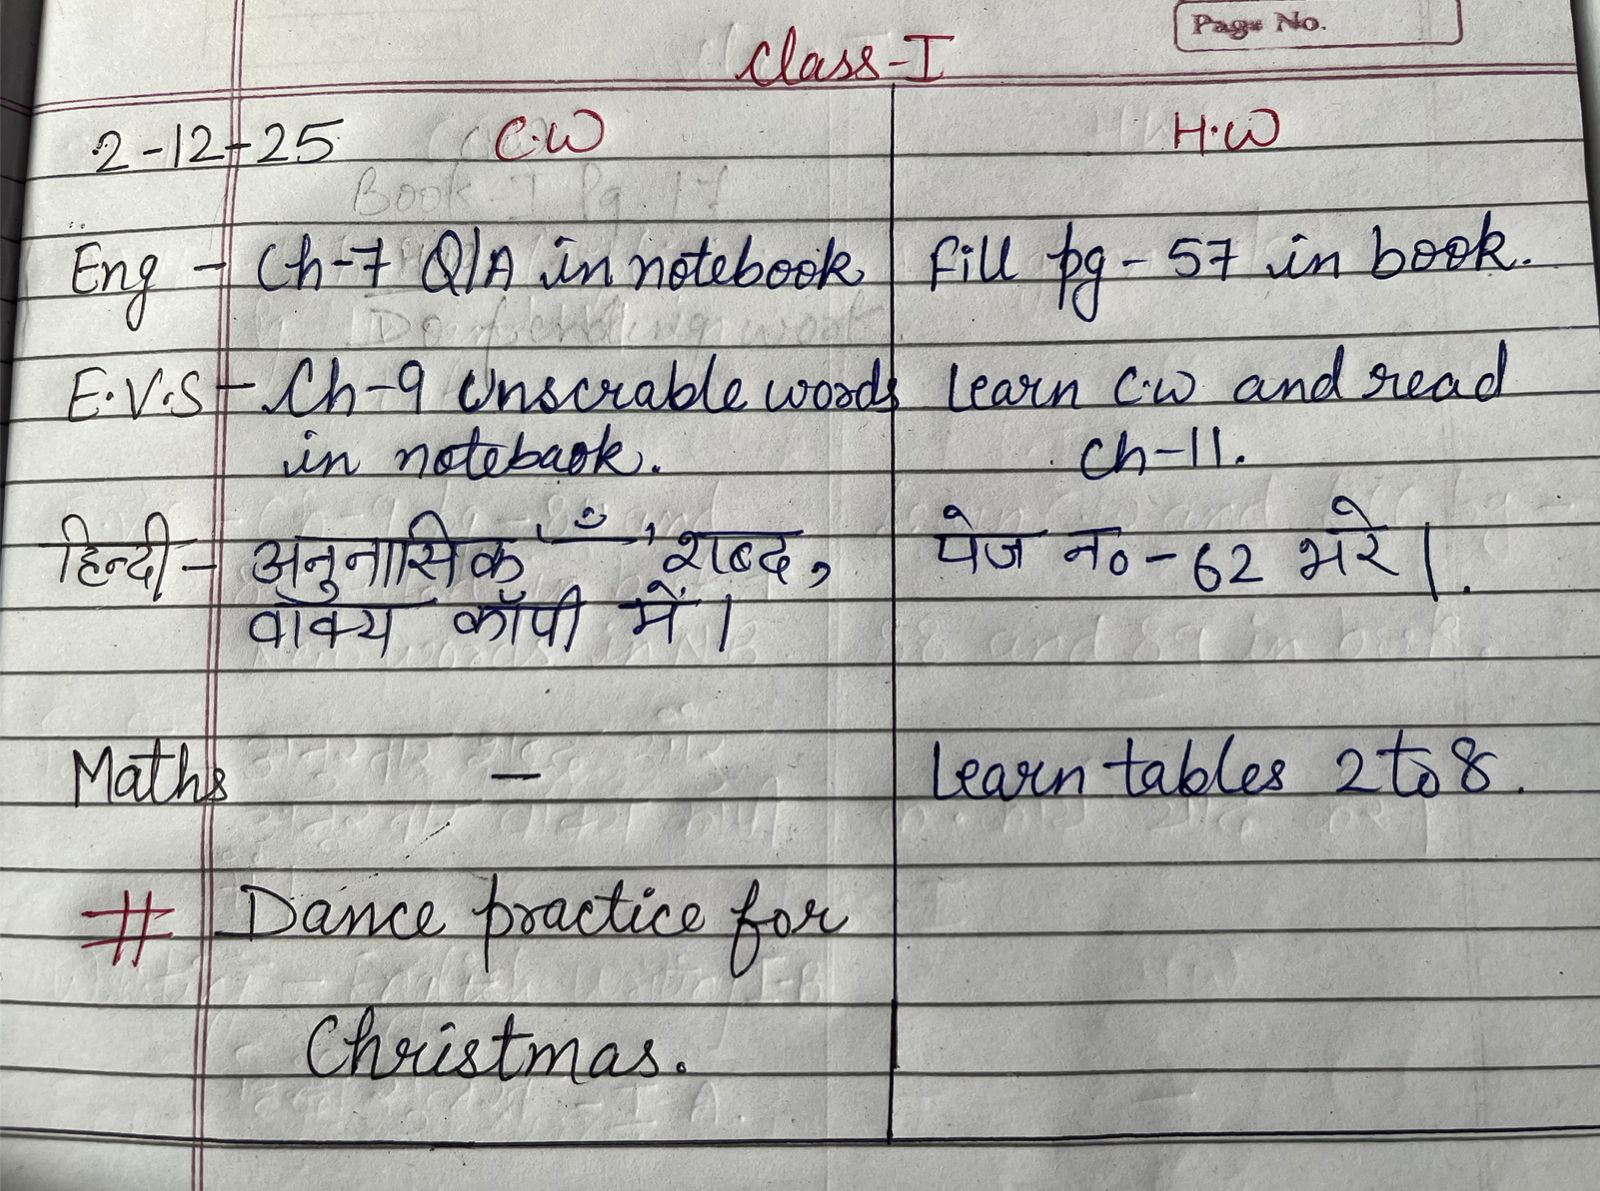 Page No.
Class-I
2-12-25 C.W H.W
Eng - Ch-7 Q/A in notebook fill pg-57 in book.
E.V.S - Ch-9 Unscrable words learn C.W and read
in notebook. Ch-11.
हिन्दी - अनुनासिक ' ँ ' शब्द, पेज न०-62 भरे।
वाक्य कॉपी में।
Maths - learn tables 2 to 8.
# Dance practice for
Christmas.